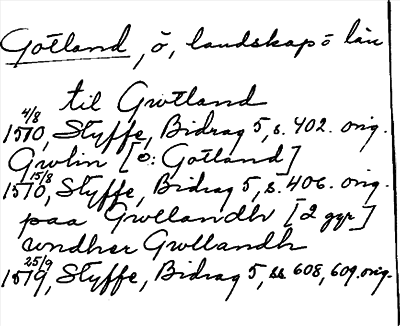 Gotland, ö, landskap o län
til Gwtland
4/8
1510, Styffe, Bidrag 5, s. 402. orig.
Gwlin [o: Gotland]
15/8
1510, Styffe, Bidrag 5, s. 406. orig.
paa Gwllandh [2 ggr]
wndher Gwllandh
25/9
1519, Styffe, Bidrag 5, ss 608, 609. orig.